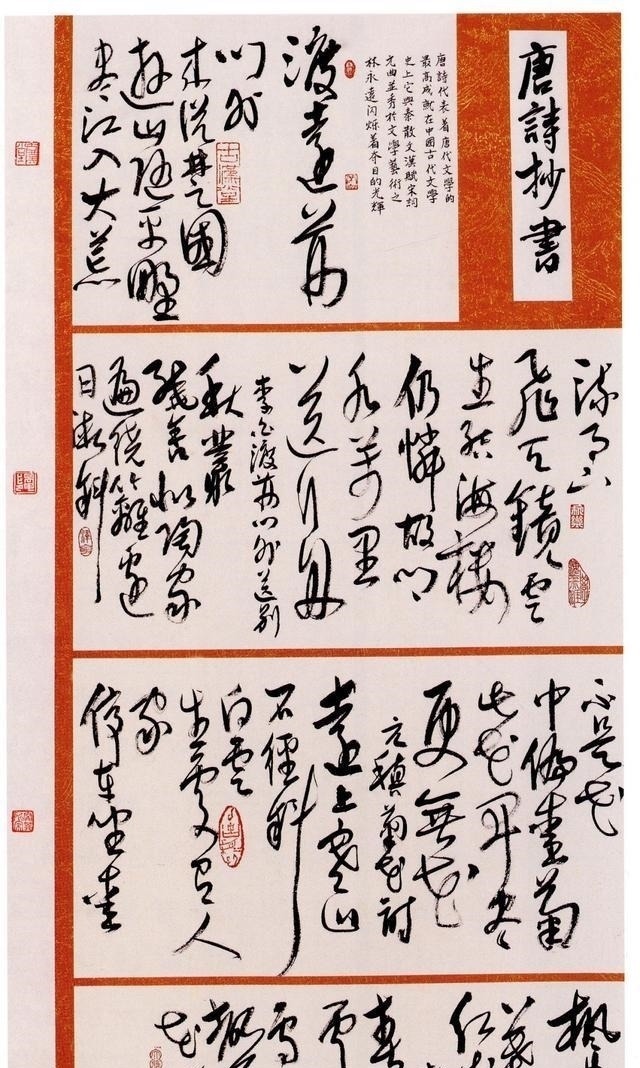 唐詩抄書
唐詩代表着唐代文學的
最高成就在中國古代文學
史上它與秦散文漢賦宋詞
元曲並秀於文學藝術之
林永遠閃爍着奪目的光輝
渡遠荊
門外
來從楚國
遊山隨平野
盡江入大荒
流月下
飛天鏡雲
生結海樓
仍憐故鄉
水萬里
送行舟
李白渡荊門外送別
秋叢
繞舍似陶家
遍繞籬邊
日漸斜
不是花
中偏愛菊
此花開盡
更無花
元稹菊花詩
遠上寒山
石徑斜
白雲
生處有人
家
停車坐愛
楓
紅